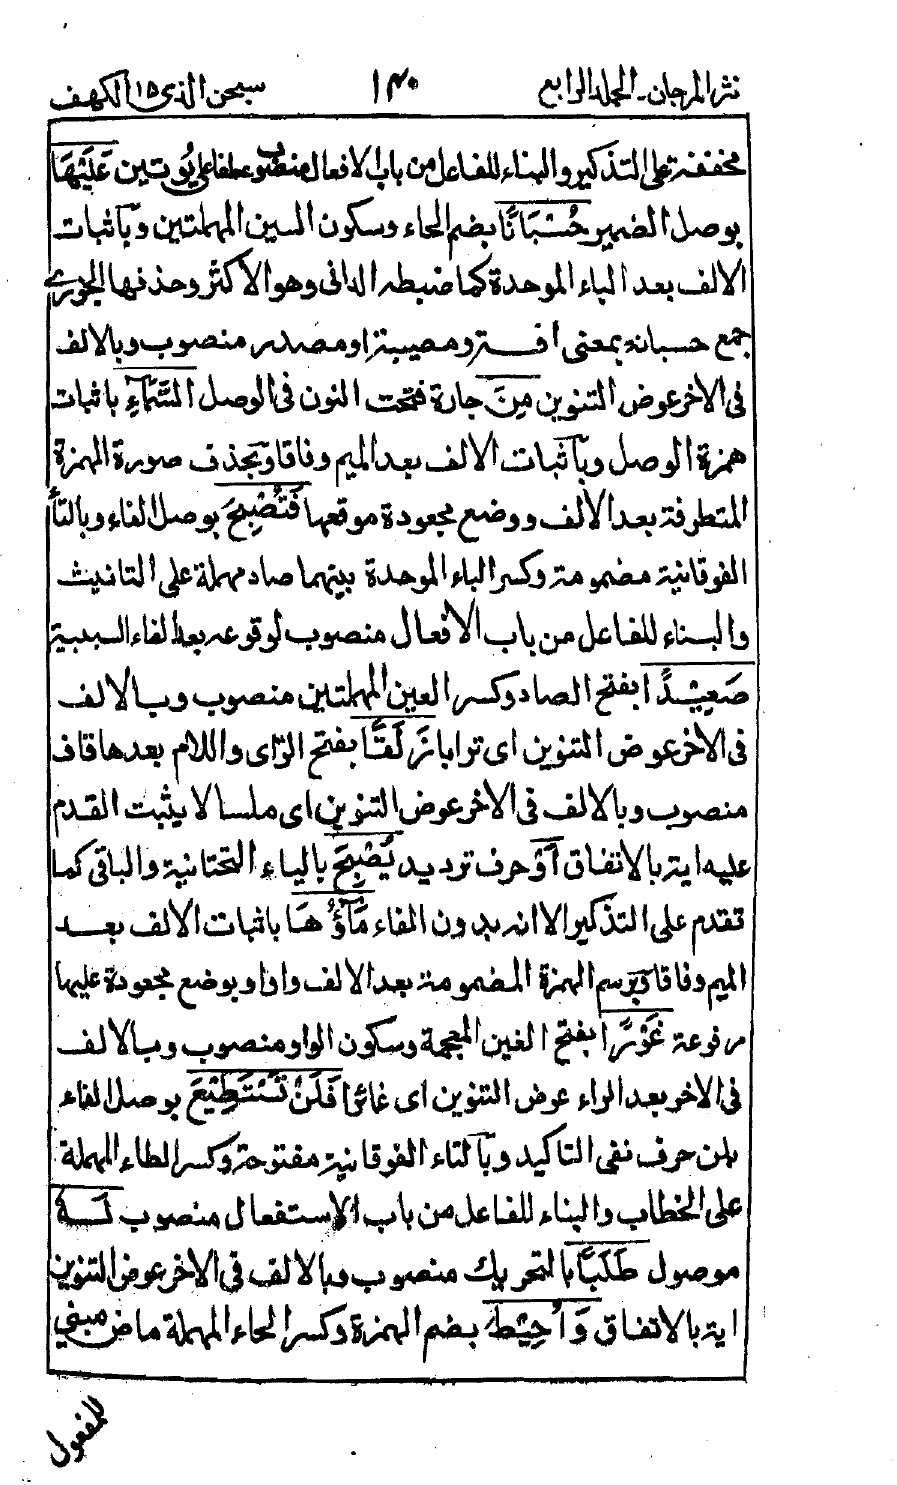 نثر المرجان۔ المجلد الرابع ١٤٠ سبحن الذی ١٥ الكهف
مخففة على التذكير والبناء للفاعل من باب الافعال منصوب عطفا على يُوتين عَلَيْهَا
بوصل الضمير حُسْبَانًا بضم الحاء وسكون السين المهملتين وباثبات
الالف بعد الباء الموحدة كما ضبطه الدانى وهو الاكثر وحذفها الجزرے
جمع حسبانة بمعنى افة ومصيبة او مصدر منصوب وبالالف
فى الاخر عوض التنوين مِنَ جارة فتحت النون فى الوصل السَّمَآءِ باثبات
همزة الوصل وباثبات الالف بعد الميم وفاقا وبحذف صورة الهمزة
المتطرفة بعد الالف ووضع مجعودة موقعها فَتُصْبِحَ بوصل الفاء وبالتاء
الفوقانية مضمومة وكسر الباء الموحدة بينهما صاد مهملة على التانيث
والبناء للفاعل من باب الافعال منصوب لوقوعه بعد الفاء السببية
صَعِيْدًا بفتح الصاد وكسر العين المهملتين منصوب وبالالف
فى الاخر عوض التنوين اى ترابا زَلَقًا بفتح الزاى واللام بعدها قاف
منصوب وبالالف فى الاخر عوض التنوين اى ملسا لا يثبت القدم
عليه اية بالاتفاق اَوْ حرف ترديد يُصْبِحَ بالياء التحتانية والباقى كما
تقدم على التذكير الا انه بدون الفاء مَآؤُهَا باثبات الالف بعد
الميم وفاقا وبرسم الهمزة المضمومة بعد الالف واوا وبوضع مجعودة عليها
مرفوعة غَوْرًا بفتح الغين المعجمة وسكون الواو منصوب وبالالف
فى الاخر بعد الراء عوض التنوين اى غائرا فَلَنْ تَسْتَطِيْعَ بوصل الفاء
بلن حرف نفى التاكيد وبالتاء الفوقانية مفتوحة وكسر الطاء المهملة
على الخطاب والبناء للفاعل من باب الاستفعال منصوب لَهٗ
موصول طَلَبًا بالتحريك منصوب وبالالف فى الاخر عوض التنوين
اية بالاتفاق وَاُحِيْطَ بضم الهمزة وكسر الحاء المهملة ماض مبنى
للمفعول